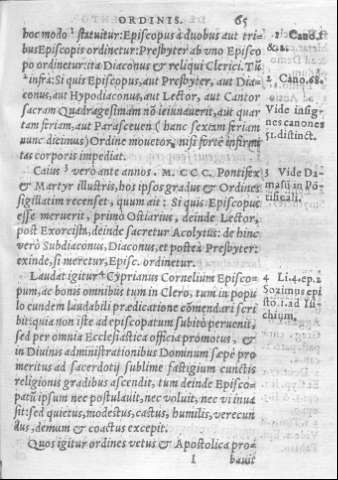 ORDINIS. 65
hoc modo ¹ statuitur: Episcopus à duobus aut tri-
bus Episcopis ordinetur: Presbyter ab vno Episco
po ordinetur: ita Diaconus & reliqui Clerici. Tū
² infra: Si quis Episcopus, aut Presbyter, aut Dia-
conus, aut Hypodiaconus, aut Lector, aut Cantor
sacram Quadragesimam nō ieiunauerit, aut quar
tam feriam, aut Parasceuen ( hanc sextam feriam
nunc dicimus) Ordine mouetor, nisi fortè infirmi
tas corporis impediat.
Caius ³ verò ante annos . M. CCC. Pontifex
& Martyr illustris, hos ipsos gradus & Ordines
sigillatim recenset, quum ait : Si quis Episcopus
esse meruerit, primò Ostiarius, deinde Lector,
post Exorcista, deinde sacretur Acolytus: de hinc
verò Subdiaconus, Diaconus, et postea Presbyter:
exinde, si meretur, Episc. ordinetur.
Laudat igitur ⁴ Cyprianus Cornelium Episco-
pum, ac bonis omnibus tum in Clero, tum in popu
lo eundem laudabili prædicatione cōmendari scri
bit: quia non iste ad episcopatum subitò peruenit,
sed per omnia Ecclesiastica officia promotus, &
in Diuinis administrationibus Dominum sæpè pro
meritus ad sacerdotij sublime fastigium cunctis
religionis gradibus ascendit, tum deinde Episco-
patū ipsum nec postulauit, nec voluit, nec vi inua
sit: sed quietus, modestus, castus, humilis, verecun
dus, demum & coactus excepit.
Quos igitur ordines vetus & Apostolica pro-
I bauit
Cano. 1
& 2.
2 Cano. 68.
Vide insig-
nes canones
51. distinct.
3 Vide Da-
masū in Pō-
tificali.
4 Li. 4. ep. 2
Sozimus epi
sto. 1. ad
chium.